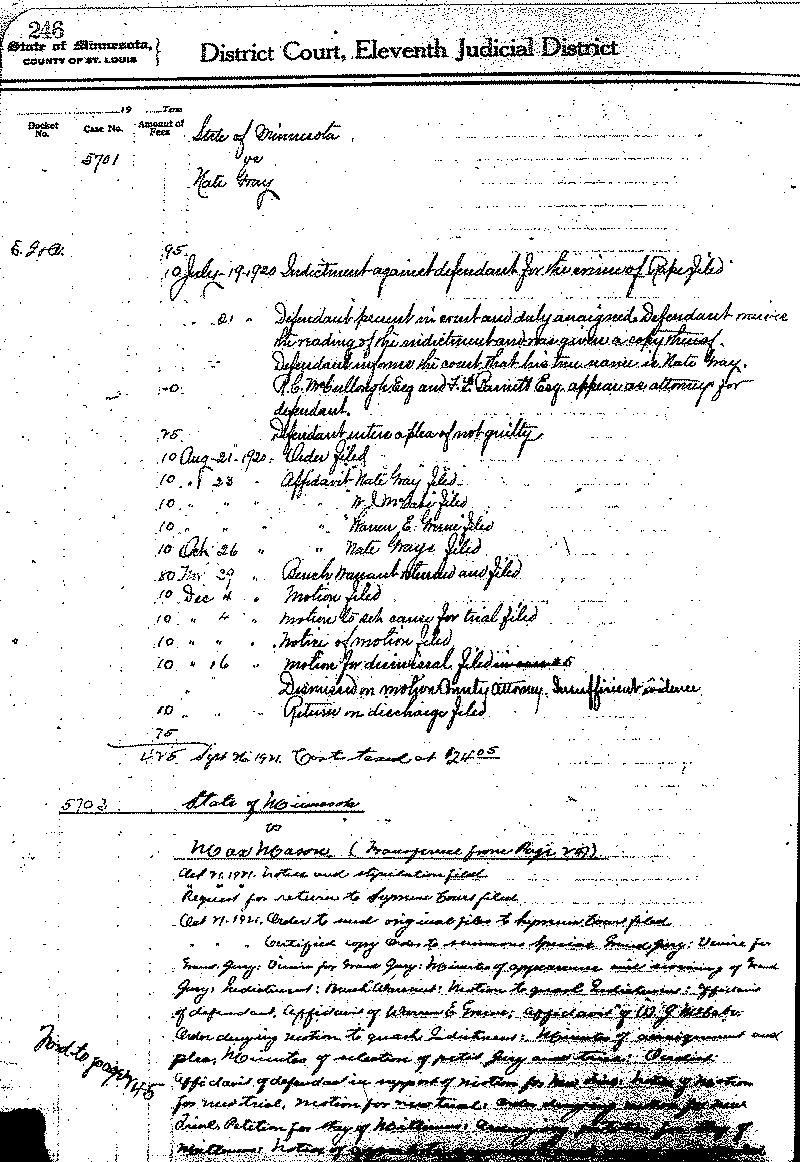 246
State of Minnesota,
COUNTY OF ST. LOUIS
District Court, Eleventh Judicial District
19 Term
Docket No. Case No. Amount of Fees
State of Minnesota
5701 vs
Nate Gray
95
10 July-19-1920 Indictment against defendant for the crime of Rape filed
" 21 " Defendant present in court and duly arraigned. Defendant
the reading of the indictment and was given a copy thereof.
Defendant informs the court that his true name is Nate Gray.
Esq and Esq. appear as attorneys for
defendant.
25 Defendant enters a plea of not guilty
10 Aug-21-1920. Order filed
10 " 23 " Affidavit Nate Gray filed
10 " " " " W. J. McCabe filed
10 " " " " Warren E. Greene filed
10 Oct 26 " " Nate Grays filed
80 Nov 29 " Bench Warrant returned and filed
10 Dec 4 " Motion filed
10 " 4 " Motion to set cause for trial filed
10 " " " Notice of motion filed
10 " 16 " Motion for dismissal filed
Dismissed on motion County Attorney. Insufficient evidence
10 " " Return on discharge filed
75
485 Sept 26 1921. Cost taxed at $24.05
5702 State of Minnesota
vs
Max Mason (Transference from Page 247)
Oct 21, 1921. Notice and stipulation filed
Request for return to Supreme Court filed
Oct 21, 1921. Order to send original files to Supreme Court filed
" " " Certified copy Order to summons Special Grand Jury: Venire for
Grand Jury: Venire for Grand Jury: Minutes of appearance and swearing of Grand
Jury: Indictment: Bench Warrant: Motion to quash Indictment: Affidavit
of defendant, Affidavit of Warren E Greene, Affidavit of W. J. McCabe.
Order denying motion to quash Indictment: Minutes of arraignment and
plea, Minutes of selection of petit Jury and trial: Verdict:
Affidavit of defendant in support of motion for new trial: Notice of motion
for new trial, motion for new trial: Order denying motion for new
Trial, Petition for Stay of Mittimus: petition for Stay of
Mittimus: Notice of
Trnd to page 245